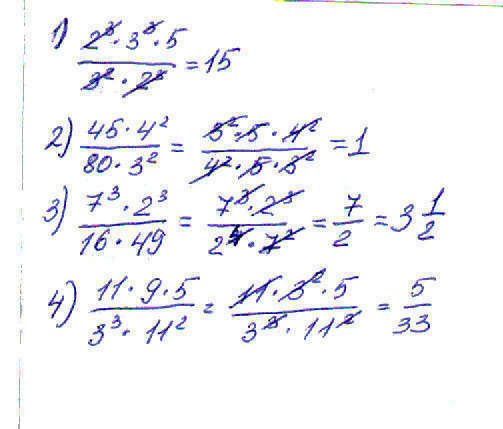 1) 2³·3³·5 / 3²·2³ = 15
2) 45·4² / 80·3² = 3²·5·4² / 4²·5·3² = 1
3) 7³·2³ / 16·49 = 7³·2³ / 2⁴·7² = 7/2 = 3 1/2
4) 11·9·5 / 3³·11² = 11·3²·5 / 3³·11² = 5/33